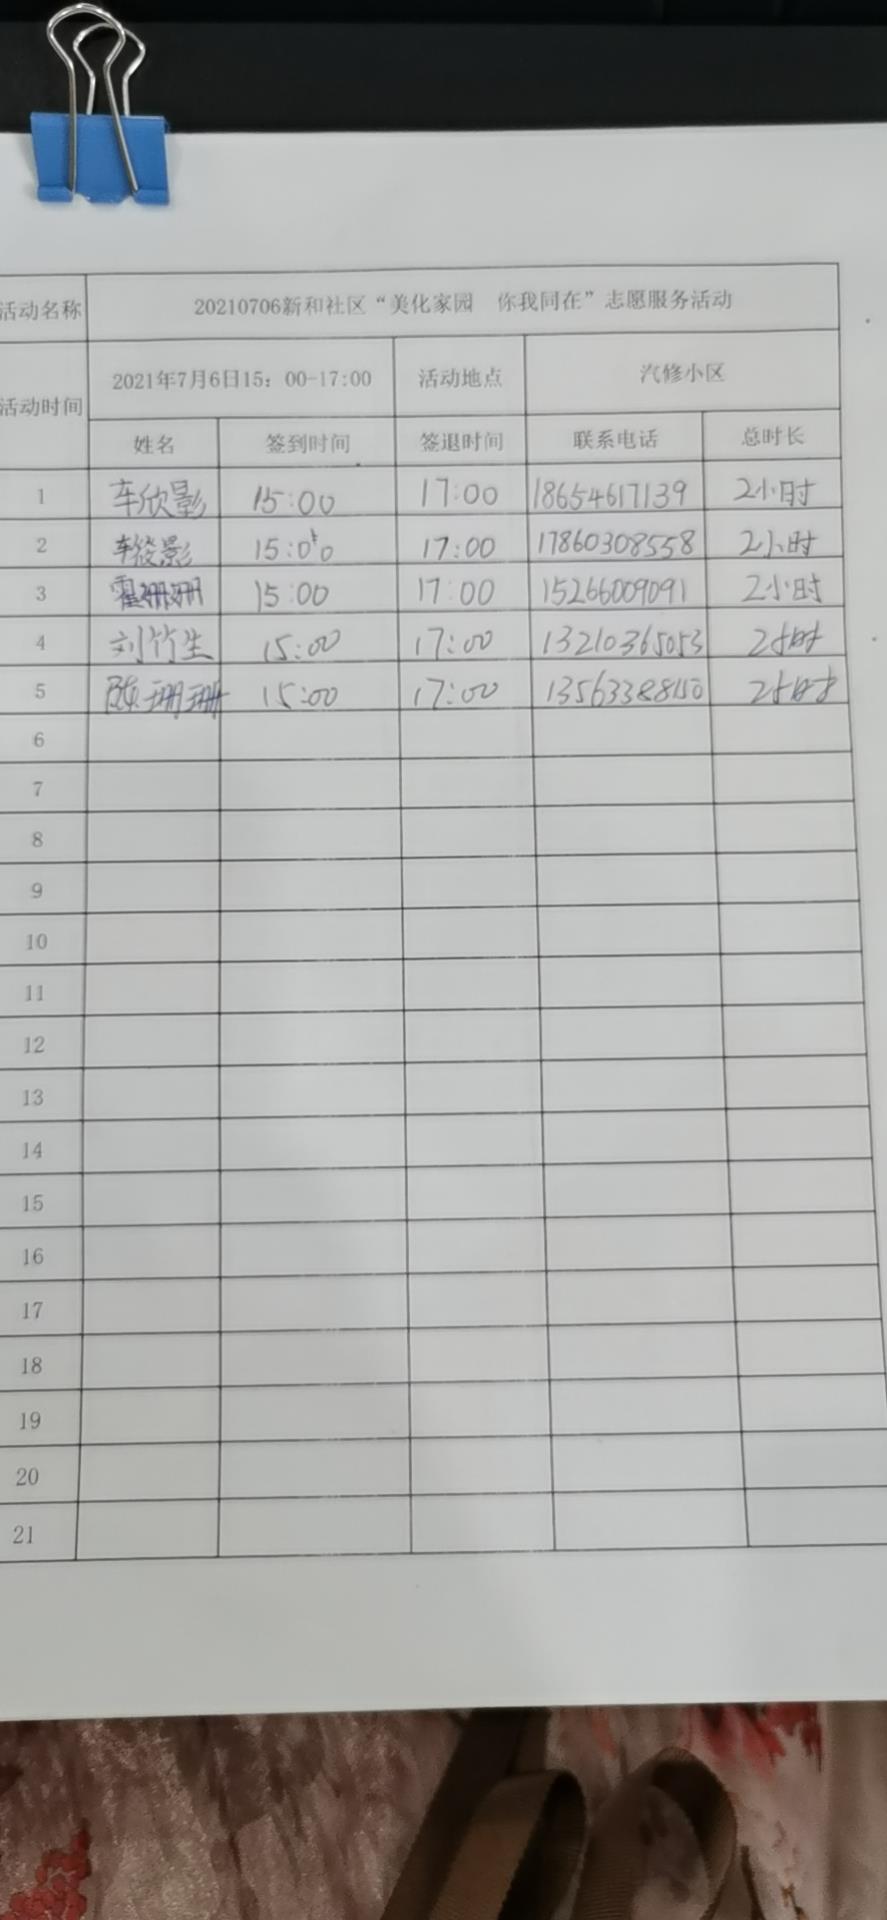 活动名称 20210706新和社区“美化家园 你我同在”志愿服务活动
活动时间 2021年7月6日15：00-17:00 活动地点 汽修小区
姓名 签到时间 签退时间 联系电话 总时长
1 车欣影 15:00 17:00 18654617139 2小时
2 车筱影 15:00 17:00 17860308558 2小时
3 霍珊珊 15:00 17:00 15266009091 2小时
4 刘竹生 15:00 17:00 13210365053 2小时
5 陈珊珊 15:00 17:00 2小时
6
7
8
9
10
11
12
13
14
15
16
17
18
19
20
21